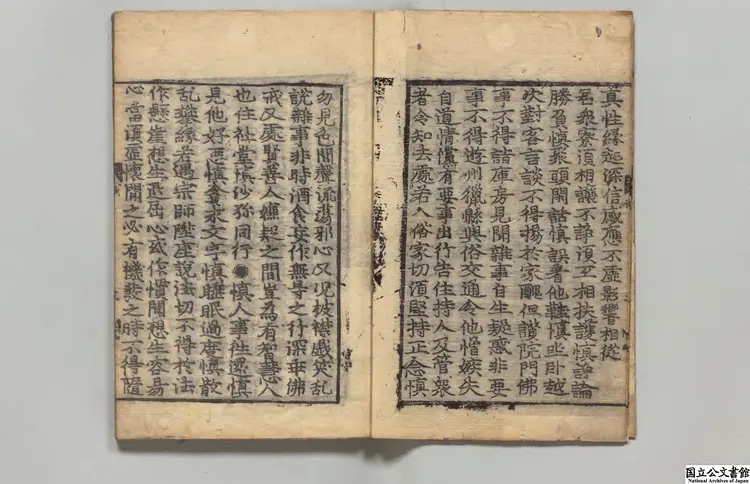 真性緣起深信感應不虛影響相從
居衆寮須相讓不諍須互相扶護慎諍論
勝負慎聚頭閑話慎誤著他鞋慎坐卧越
次對客言談不得揚於家醜但讃院門佛
事不得詣庫房見聞雜事自生疑惑非要
事不得遊州獵縣與俗交通令他憎嫉失
自道情儻有要事出行告住持人及管衆
者令知去處若入俗家切須堅持正念慎
勿見色聞聲流蕩邪心又况披襟戱笑乱
說雜事非時酒食妄作無导之行深乖佛
戒又處賢善人嫌疑之間豈為有智慧人
也住社堂慎沙弥同行●慎人事往還慎
見他好惡慎貪求文字慎睡眠過度慎散
乱攀緣若遇宗師陞座說法切不得於法
作懸崖想生退屈心或作慣聞想生容易
心當須虛懷聞之必有機發之時不得隨
国立公文書館
National Archives of Japan